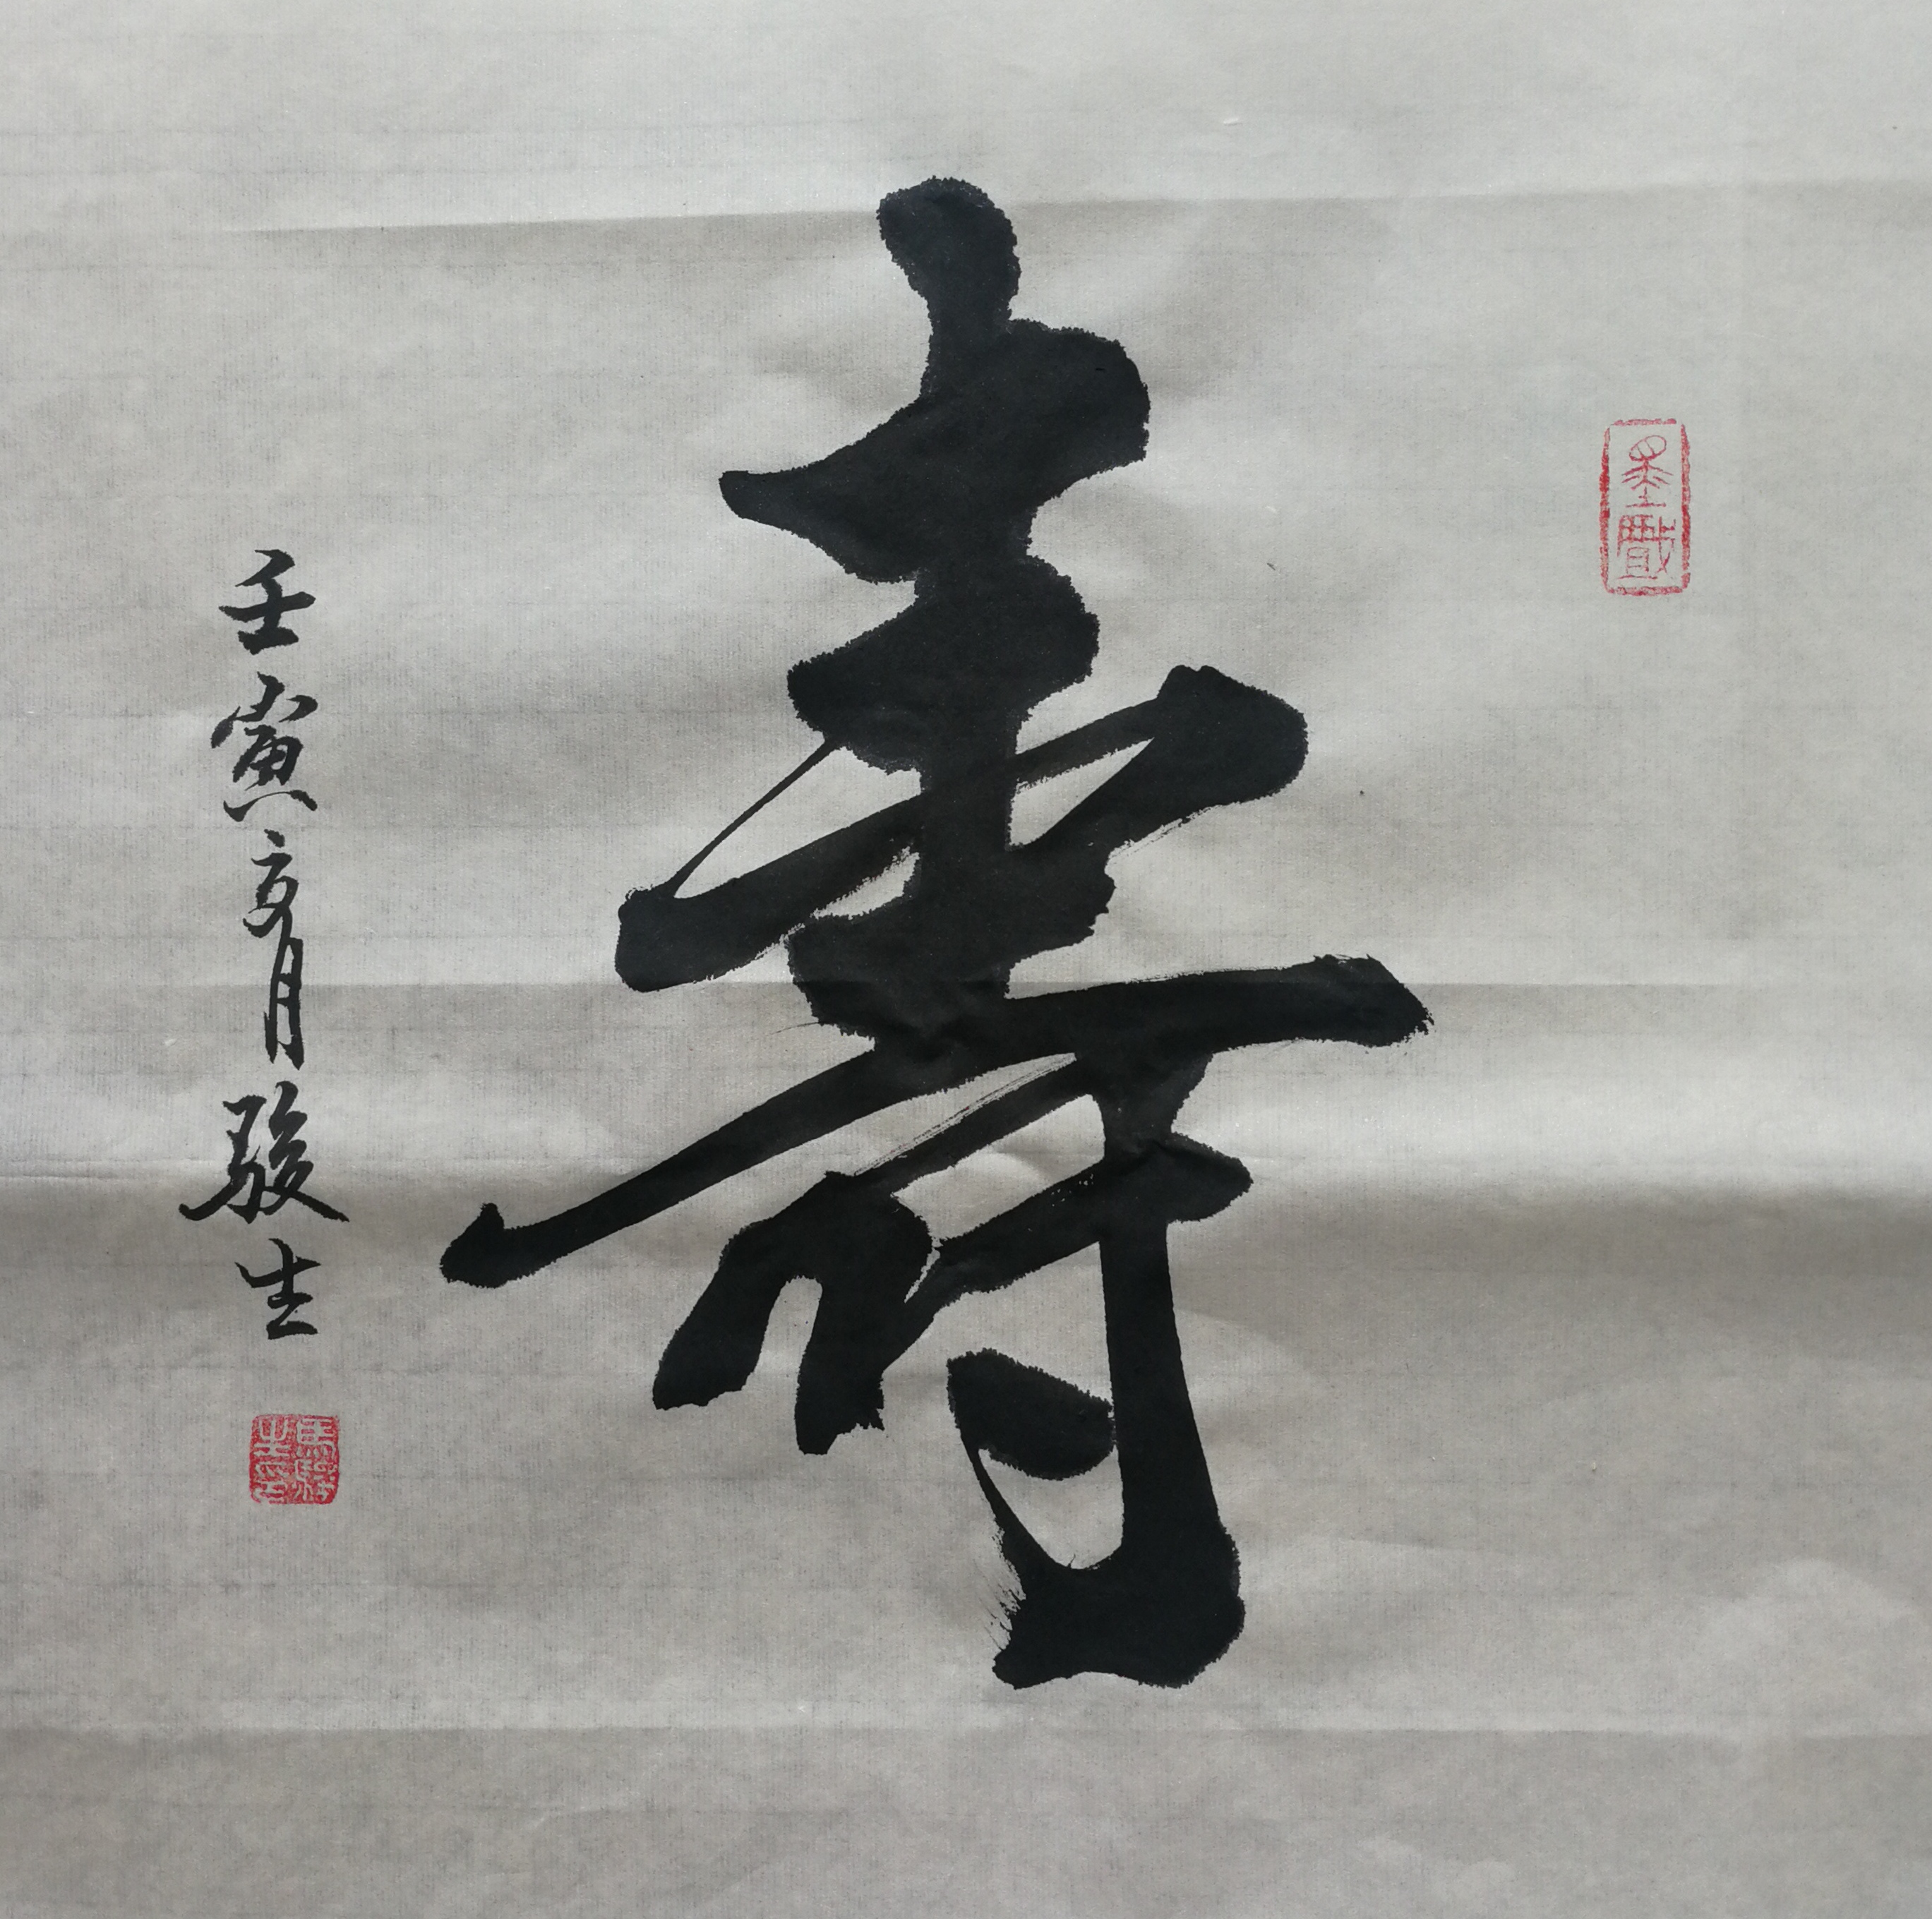 墨戲
壽
壬寅亥月駿生
馬駿
生印